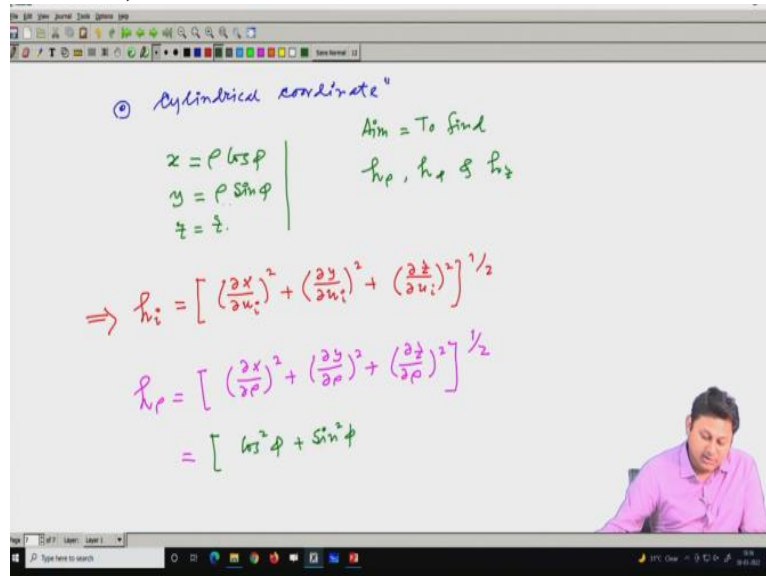 File Edit View Journal Tools Options Help
Sans Normal 12
⊙ Cylindrical coordinate"
x = ρ cos φ
y = ρ sin φ
z = z.
Aim = To find
hρ, hφ & hz
⇒ hi = [ (∂x/∂ui)² + (∂y/∂ui)² + (∂z/∂ui)² ]^1/2
hρ = [ (∂x/∂ρ)² + (∂y/∂ρ)² + (∂z/∂ρ)² ]^1/2
= [ cos² φ + sin² φ
Page 7 of 7 Layer: Layer 1
Type here to search
31°C